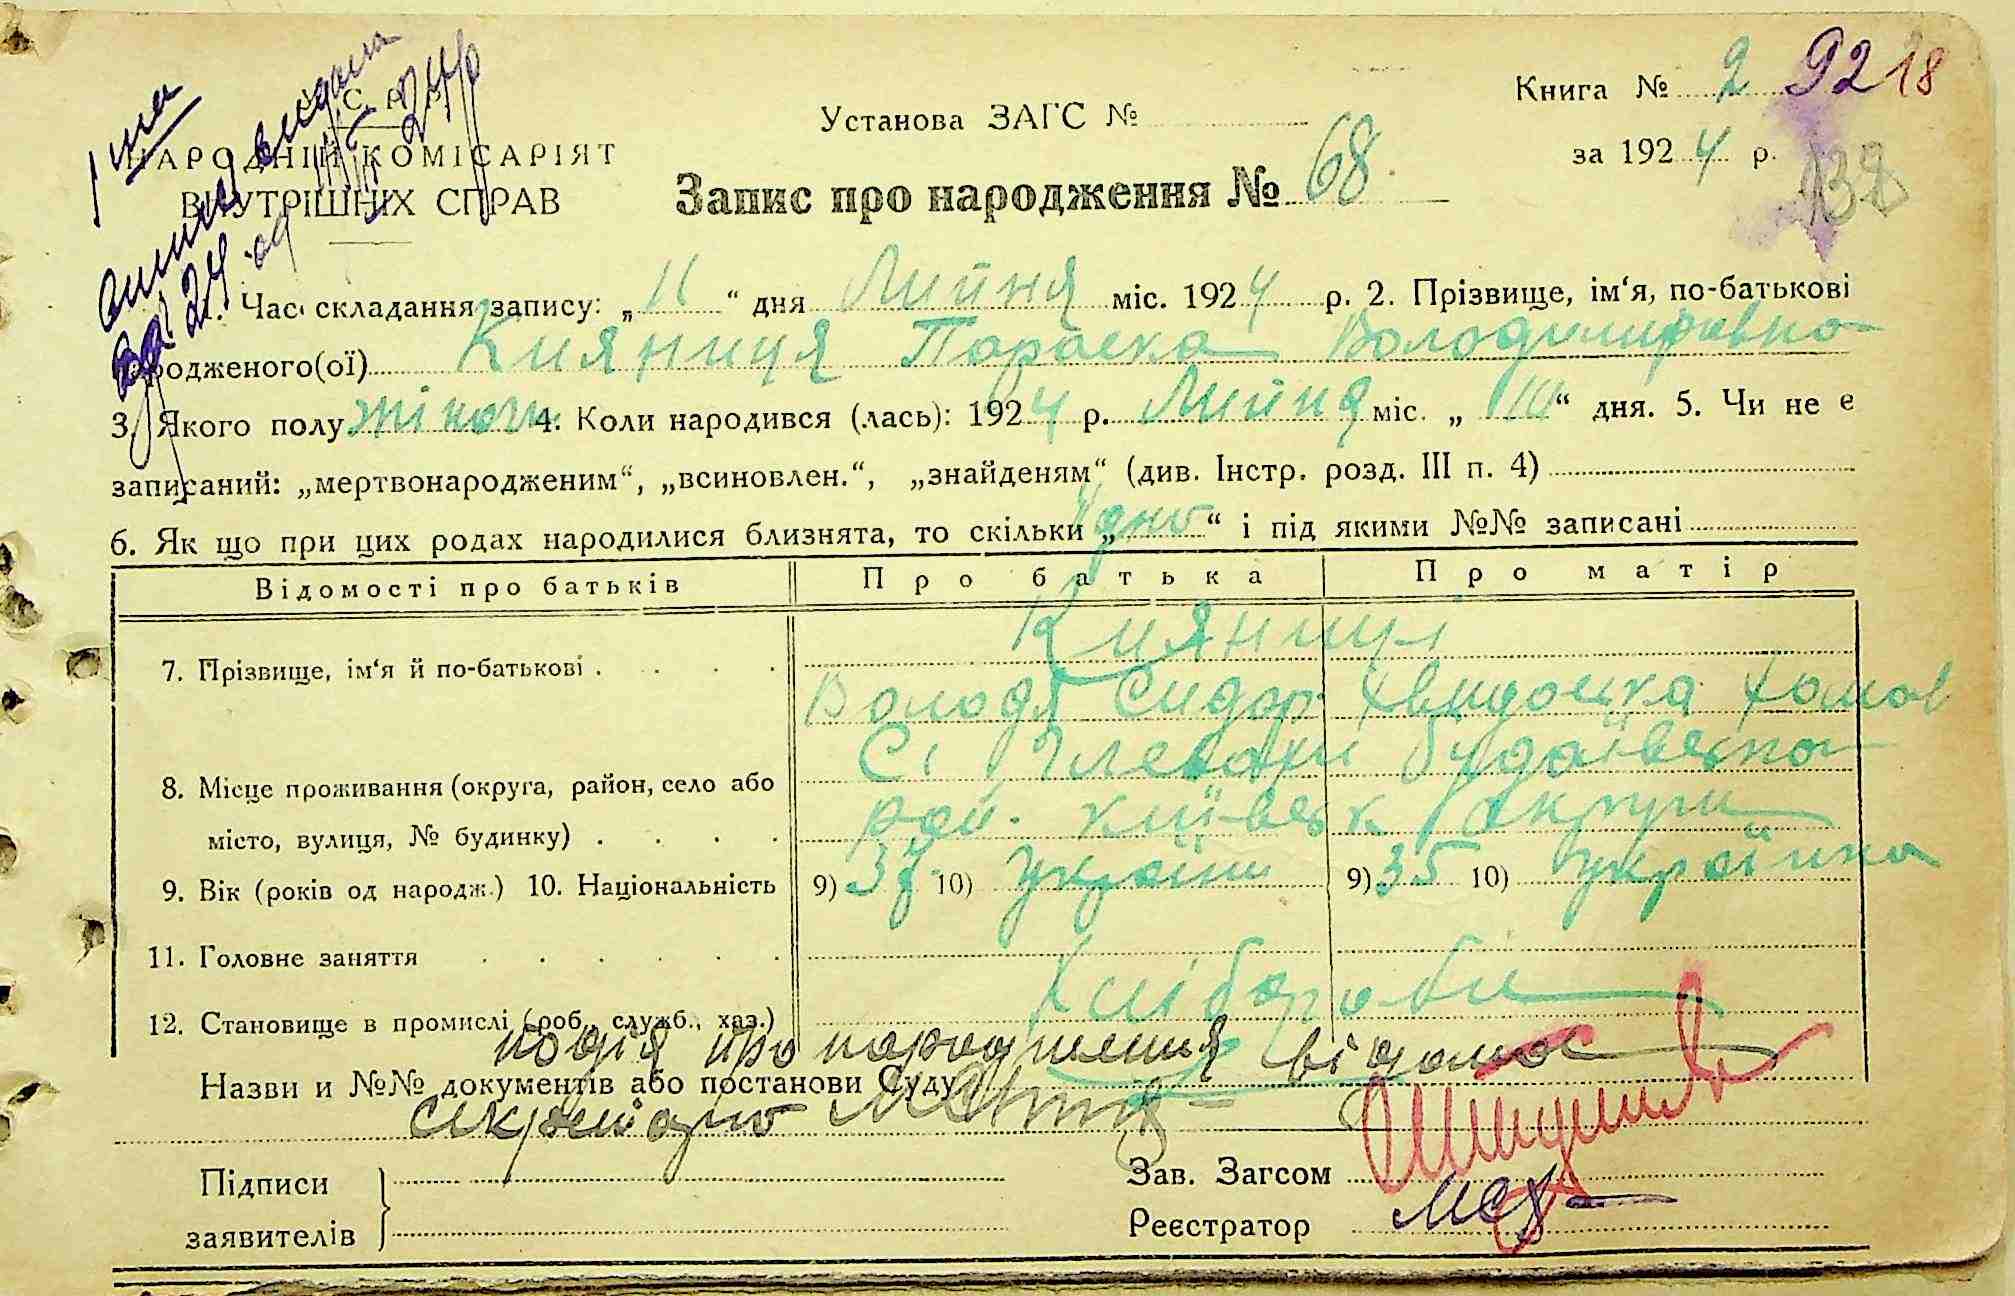 Книга № 2 92 18
У С Р Р
Установа ЗАГС №
за 1924 р.
138
НАРОДНІЙ КОМІСАРІЯТ
ВНУТРІШНІХ СПРАВ
Запис про народження № 68
1. Час складання запису: „11“ дня Липня міс. 1924 р. 2. Прізвище, ім‘я, по-батькові
народженого(ої) Кияниця Параска Володимировна
3. Якого полу жіноч. 4. Коли народився (лась): 1924 р. Липня міс. „10“ дня. 5. Чи не є
записаний: „мертвонародженим“, „всиновлен.“, „знайденям“ (див. Інстр. розд. III п. 4)
6. Як що при цих родах народилися близнята, то скільки „одно“ і під якими №№ записані
Відомості про батьків Про батька Про матір
Кияниці
7. Прізвище, ім‘я й по-батькові
Володя Сидор Хвидоська Хомов
С. Глеваха Будаївська
8. Місце проживання (округа, район, село або
рай. Київськ Округи
місто, вулиця, № будинку)
9. Вік (років од народж.) 10. Національність 9) 37 10) Україн 9) 35 10) Українка
11. Головне заняття
Хлібороби
12. Становище в промислі (роб., служб., хаз.)
подія про народження відома
Назви и №№ документів або постанови Суду
секретарю
Підписи
заявителів
Зав. Загсом
Реєстратор